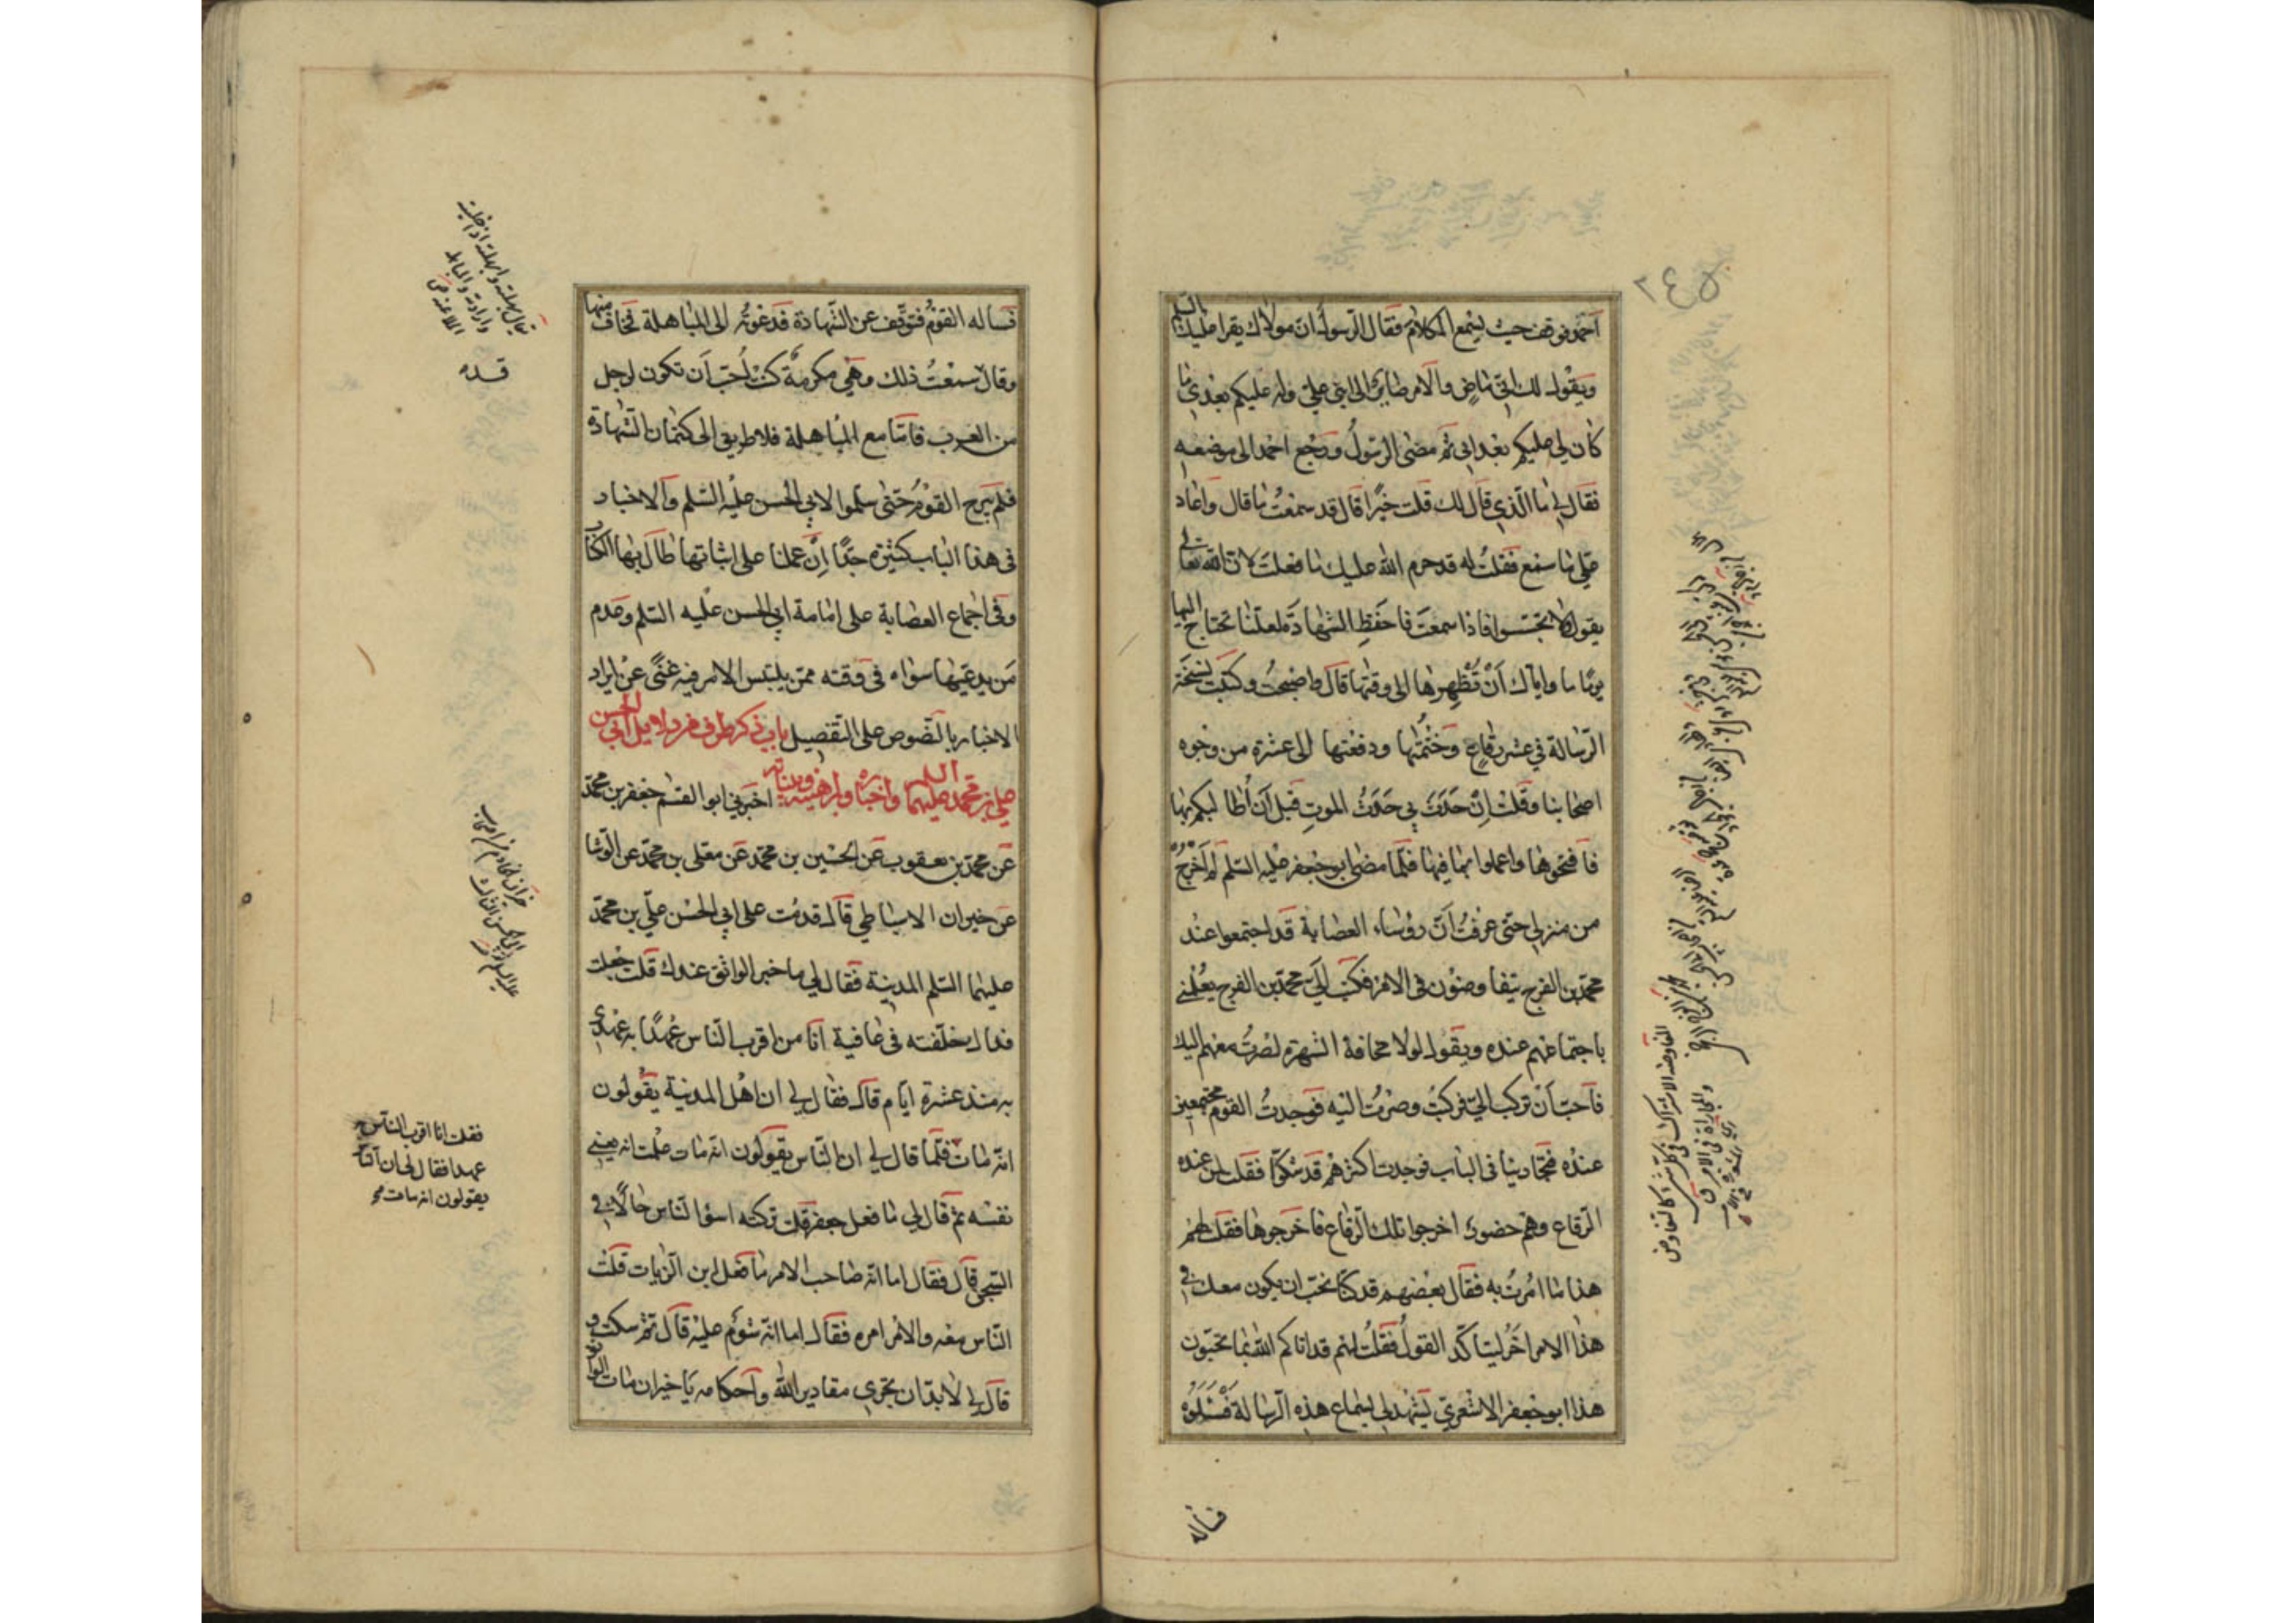 احمد ووقف حيث يسمع الكلام فقال الرسول ان مولاك يقرا عليك السلم
ويقول لك اني ماض والامر صاير الى ابني علي وله عليكم بعدي ما
كان لي عليكم بعد ابي ثم مضى الرسول ورجع احمد الى موضعه
فقال لي ما الذي قال لك قلت خيرا قال قد سمعت ما قال واعاد
علي ما سمع فقلت له قد حرم الله عليك ما فعلت لان الله تعالى
يقول ولا تجسسوا فاذا سمعت فاحفظ الشهادة لعلنا نحتاج اليها
يوما ما واياك ان تظهرها الى وقتها قال واصبحت وكتبت نسخة
الرسالة في عشر رقاع وختمتها ودفعتها الى عشرة من وجوه
اصحابنا وقلت ان حدث بي حدث الموت قبل ان اطالبكم بها
فافتحوها واعملوا بما فيها فلما مضى ابو جعفر عليه السلم لم اخرج
من منزلي حتى عرفت ان رؤساء العصابة قد اجتمعوا عند
محمد بن الفرج يتفاوضون في الامر فكتب الي محمد بن الفرج يعلمني
باجتماعهم عنده ويقول لولا مخافة الشهرة لصرت معهم اليك
فاحب ان تركب الي فركبت وصرت اليه فوجدت القوم مجتمعين
عنده فتجارينا في الباب فوجدت اكثرهم قد شكوا فقلت لمن عنده
الرقاع وهم حضور اخرجوا تلك الرقاع فاخرجوها فقلت لهم
هذا ما امرت به فقال بعضهم قد كنا نحب ان يكون معك في
هذا الامر اخر ليتاكد القول فقلت لهم قد اتاكم الله بما تحبون
هذا ابو جعفر الاشعري يشهد لي بسماع هذه الرسالة فسلوه
فساله
فساله القوم فتوقف عن الشهادة فدعوته الى المباهلة فخاف منها
وقال سمعت ذلك وهي مكرمة كنت احب ان تكون لرجل
من العرب فاما مع المباهلة فلا طريق الى كتمان الشهادة
فلم يبرح القوم حتى سلموا لابي الحسن عليه السلم والاخبار
في هذا الباب كثيرة جدا ان عملنا على اثباتها طال بها الكتاب
وفي اجماع العصابة على امامة ابي الحسن عليه السلم وعدم
من يدعيها سواه في وقته ممن يلتبس الامر فيه غنى عن ايراد
الاخبار بالنصوص على التفصيل باب ذكر طرف من دلايل ابي الحسن
علي بن محمد عليهما السلم واخباره وبراهينه وبيناته اخبرني ابو القسم جعفر بن محمد
عن محمد بن يعقوب عن الحسين بن محمد عن معلى بن محمد عن الوشا
عن خيران الاسباطي قال قدمت على ابي الحسن علي بن محمد
عليهما السلم المدينة فقال لي ما خبر الواثق عندك قلت جعلت
فداك خلفته في عافية انا من اقرب الناس عهدا به عهدي
به منذ عشرة ايام قال فقال لي ان اهل المدينة يقولون
انه مات فلما قال لي ان الناس يقولون انه مات علمت انه يعني
نفسه ثم قال لي ما فعل جعفر قلت تركته اسوا الناس حالا في
السجن قال فقال اما انه صاحب الامر ما فعل ابن الزيات قلت
الناس معه والامر امره فقال اما انه شؤم عليه قال ثم سكت و
قال لي لا بد ان تجري مقادير الله واحكامه يا خيران مات الواثق
فقلت انا اقرب الناس
عهدا فقال لي ان الناس
يقولون انه مات